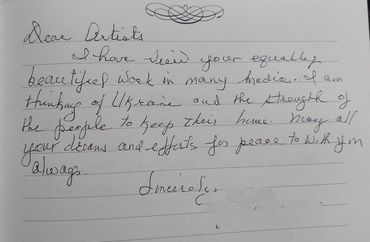 Dear Artists
I have view your equally
beautiful work in many media. I am
thinking of Ukraine and the strength of
the people to keep their home. May all
your dreams and efforts for peace to with you
always.
Sincerely,